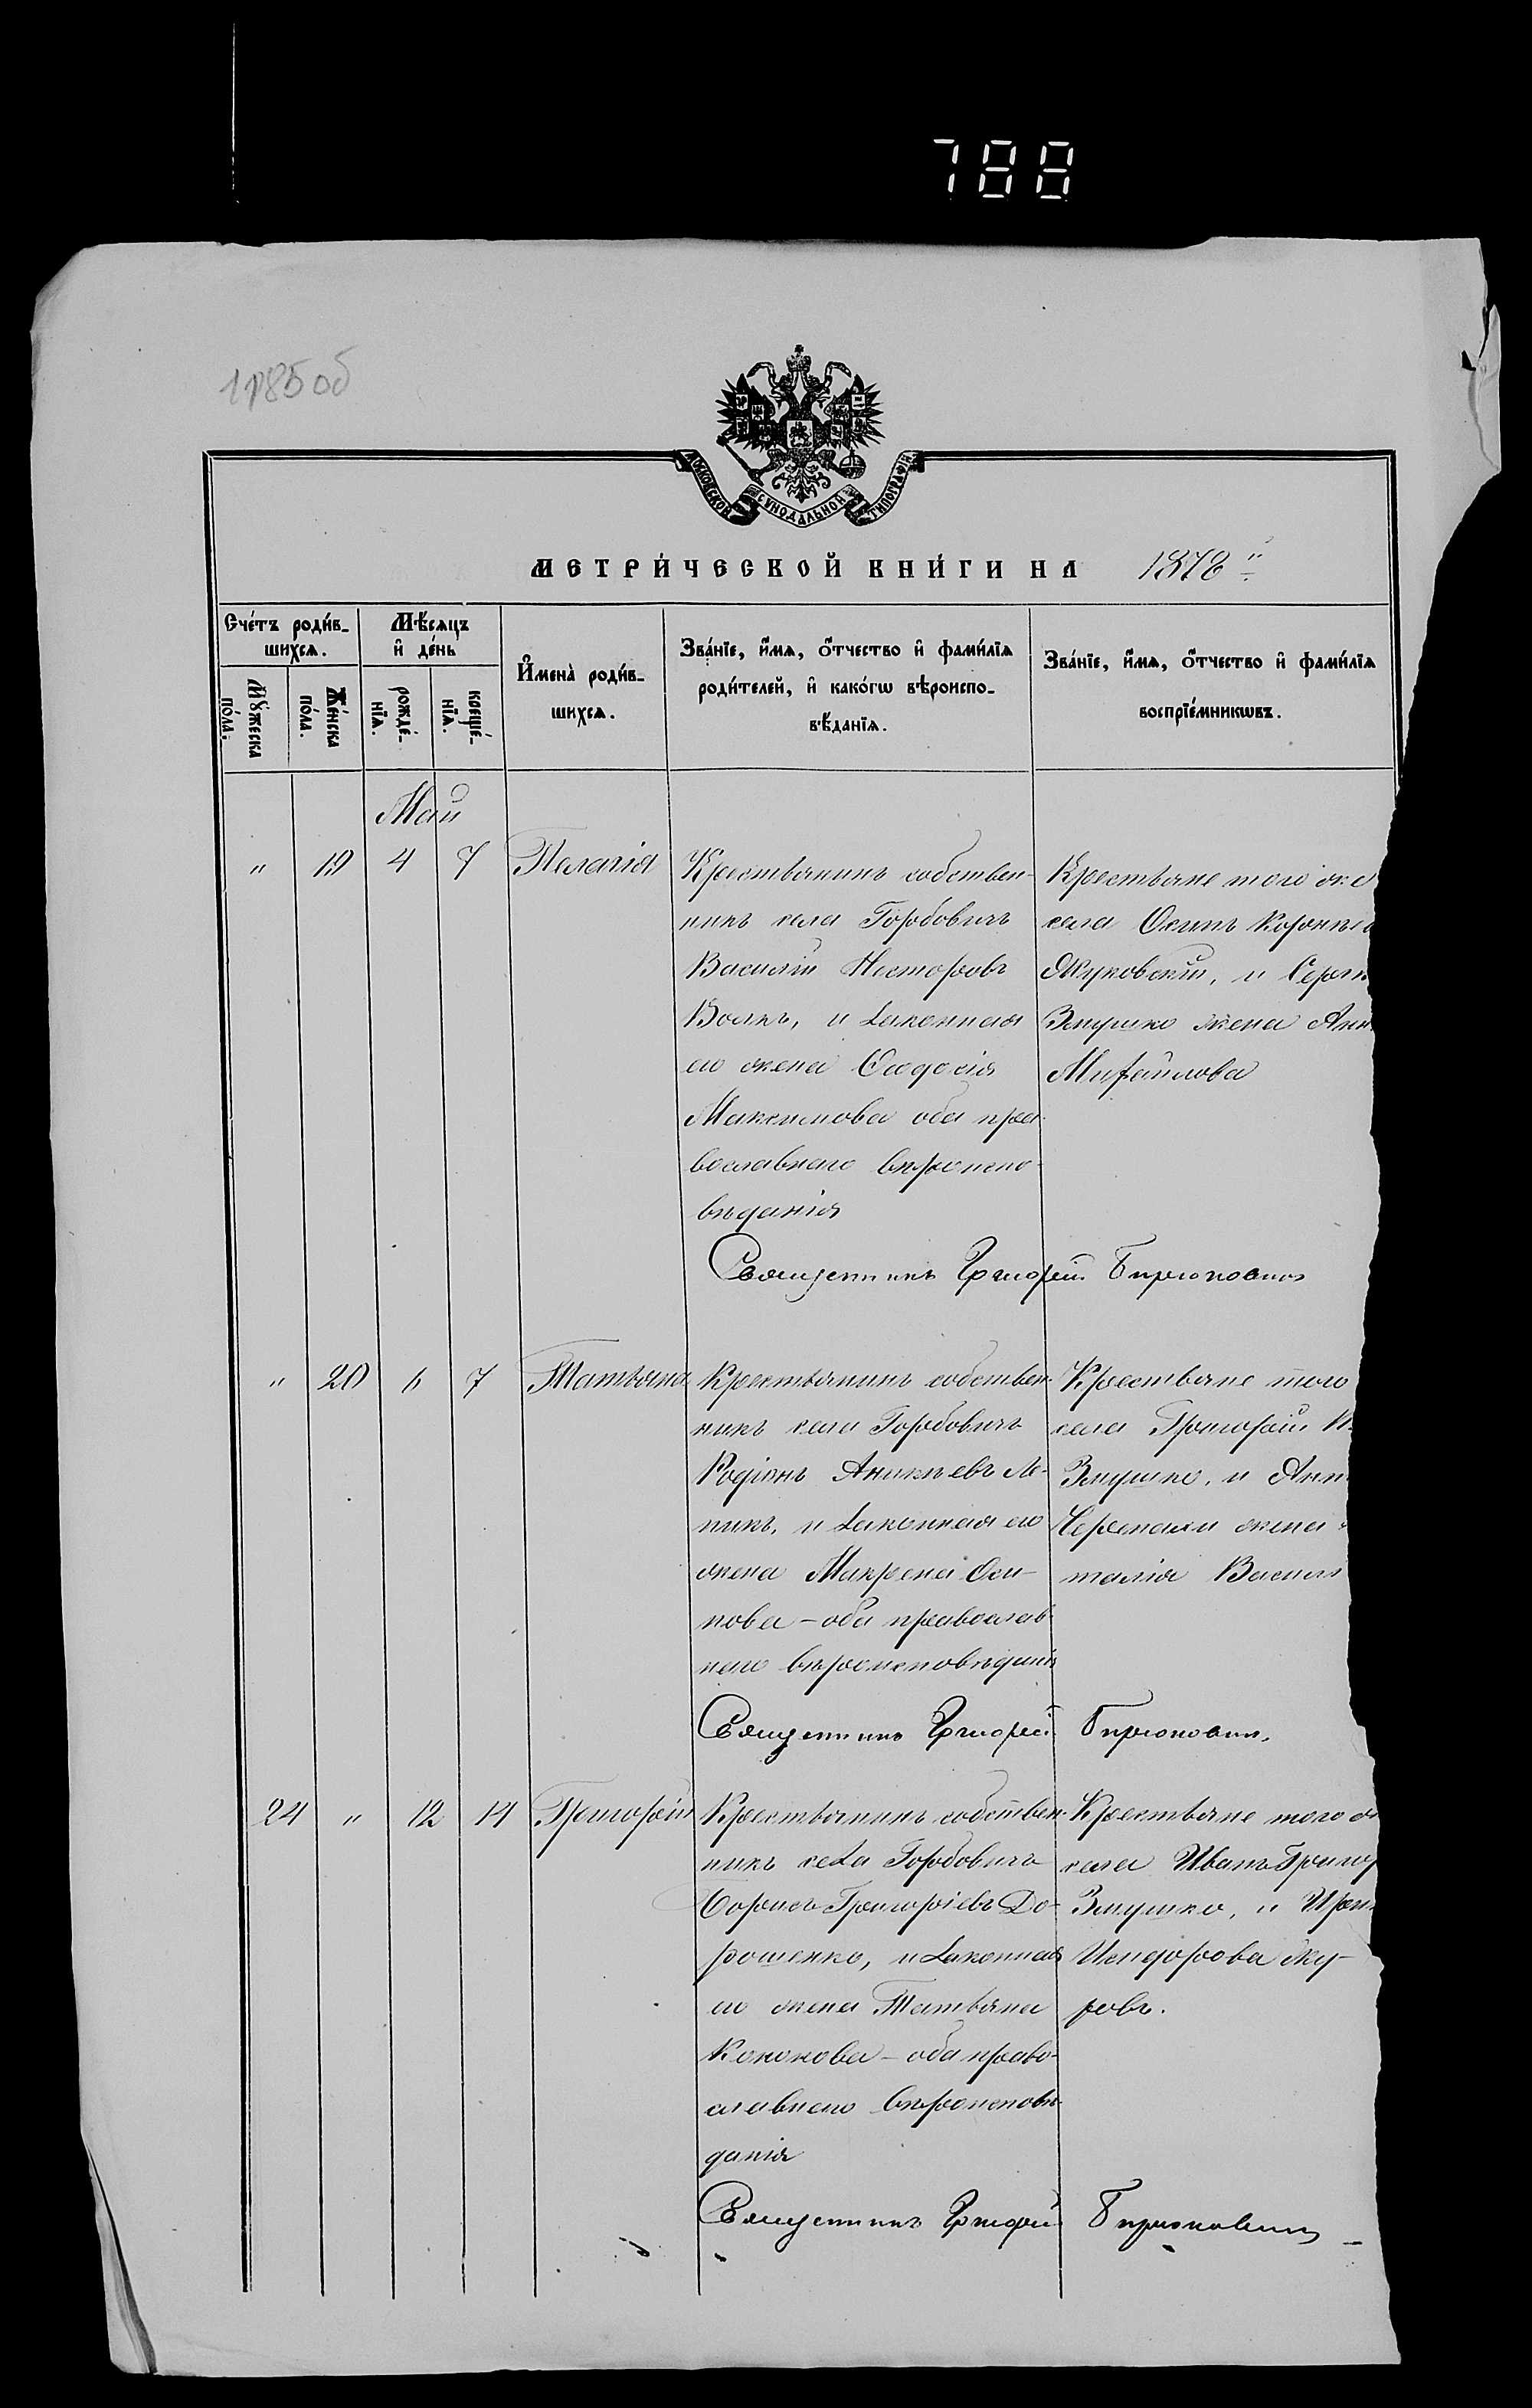 788
1185 об
МОСКОВСКОЙ СУНОДАЛЬНОЙ ТИПОГРАФІИ
МЕТРИ́ЧЕСКОЙ КНИ́ГИ НА 1878
Сче́тъ роди́в-
шихсѧ.
Мѣ́сѧцъ
и҆ де́нь
Мꙋ́жеска
по́ла.
Же́нска
по́ла.
рожде́-
нїѧ.
креще́-
нїѧ.
И҆мена̀ роди́в-
шихсѧ.
Зва́нїе, и҆́мѧ, ѻ҆́тчество и҆ фами́лїѧ
роди́телей, и҆ како́гѡ вѣроиспо-
вѣ́данїѧ.
Зва́нїе, и҆́мѧ, ѻ҆́тчество и҆ фами́лїѧ
воспрїе́мникѡвъ.
Май
" 19 4 7 Пелагія
Крестьянинъ собствен-
никъ села Горбовичъ
Василій Несторовъ
Волкъ, и законная
его жена Ѳеодосія
Максимова оба пра-
вославнаго вѣроиспо-
вѣданія
Крестьяне того же
села Осипъ
Жуковскій, и
Змушко жена Анн
Михайлова
Священникъ Григорій Бирюковичъ
" 20 6 7 Татьяна
Крестьянинъ собствен-
никъ села Горбовичъ
Родіонъ Аникіевъ Ле-
никъ, и законная его
жена Макрена Оси-
пова - оба православ-
наго вѣроисповѣданія
Крестьяне того
села Григорій
Змушко, и Анн
жена
талія Васил
Священникъ Григорій Бирюковичъ
24 " 12 14 Григорій
Крестьянинъ собствен-
никъ села Горбовичъ
Борисъ Григоріевъ До-
рошенко, и законная
его жена Татьяна
Кононова - оба право-
славнаго вѣроисповѣ-
данія
Крестьяне того
села Иванъ Григор
Змушко, и Ири
Исидорова Жу-
ровъ.
Священникъ Григорій Бирюковичъ